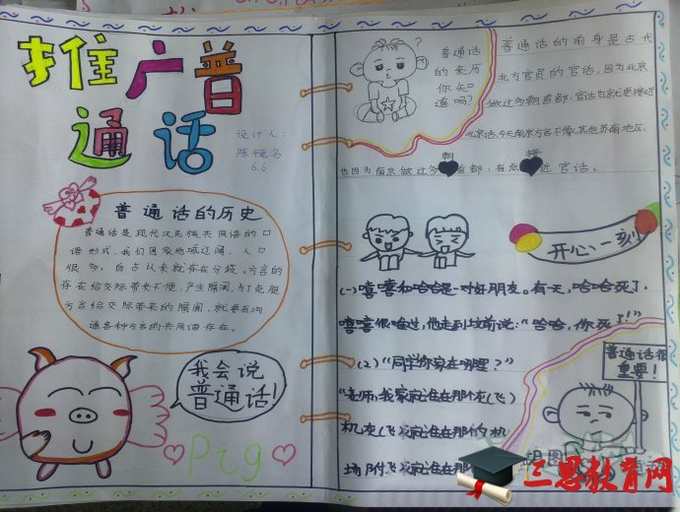 推广普
通话
设计人:
6.6
普通话的历史
普通话是现代汉民族共同语的口
语形式。我们国家地域辽阔,人口
很多,自古以来就存在分歧。方言的
存在给交际带来不便,产生隔阂,为了克服
方言给交际带来的隔阂,就要有沟
通各种方言的共同语存在。
我会说
普通话!
Pig
普通话
的来历
你知
道吗?
普通话的前身是古代
北方官员的官话,因为北京
做过多朝首都,官话也就更接近
北京话,今天南京方言不像其他苏南地区,
也因为南京做过多朝首都,有点接近官话。
开心一刻
(一)嘻嘻和哈哈是一对好朋友。有天,哈哈死了,
嘻嘻很难过,他走到坟前说:“哈哈,你死了!”
(2)“同学你家在哪哩?”
“老师,我家就谁在那个龙(飞)
机龙(飞)就谁在那的机
场附飞就谁在那
普通话很
重要!
三思教育网